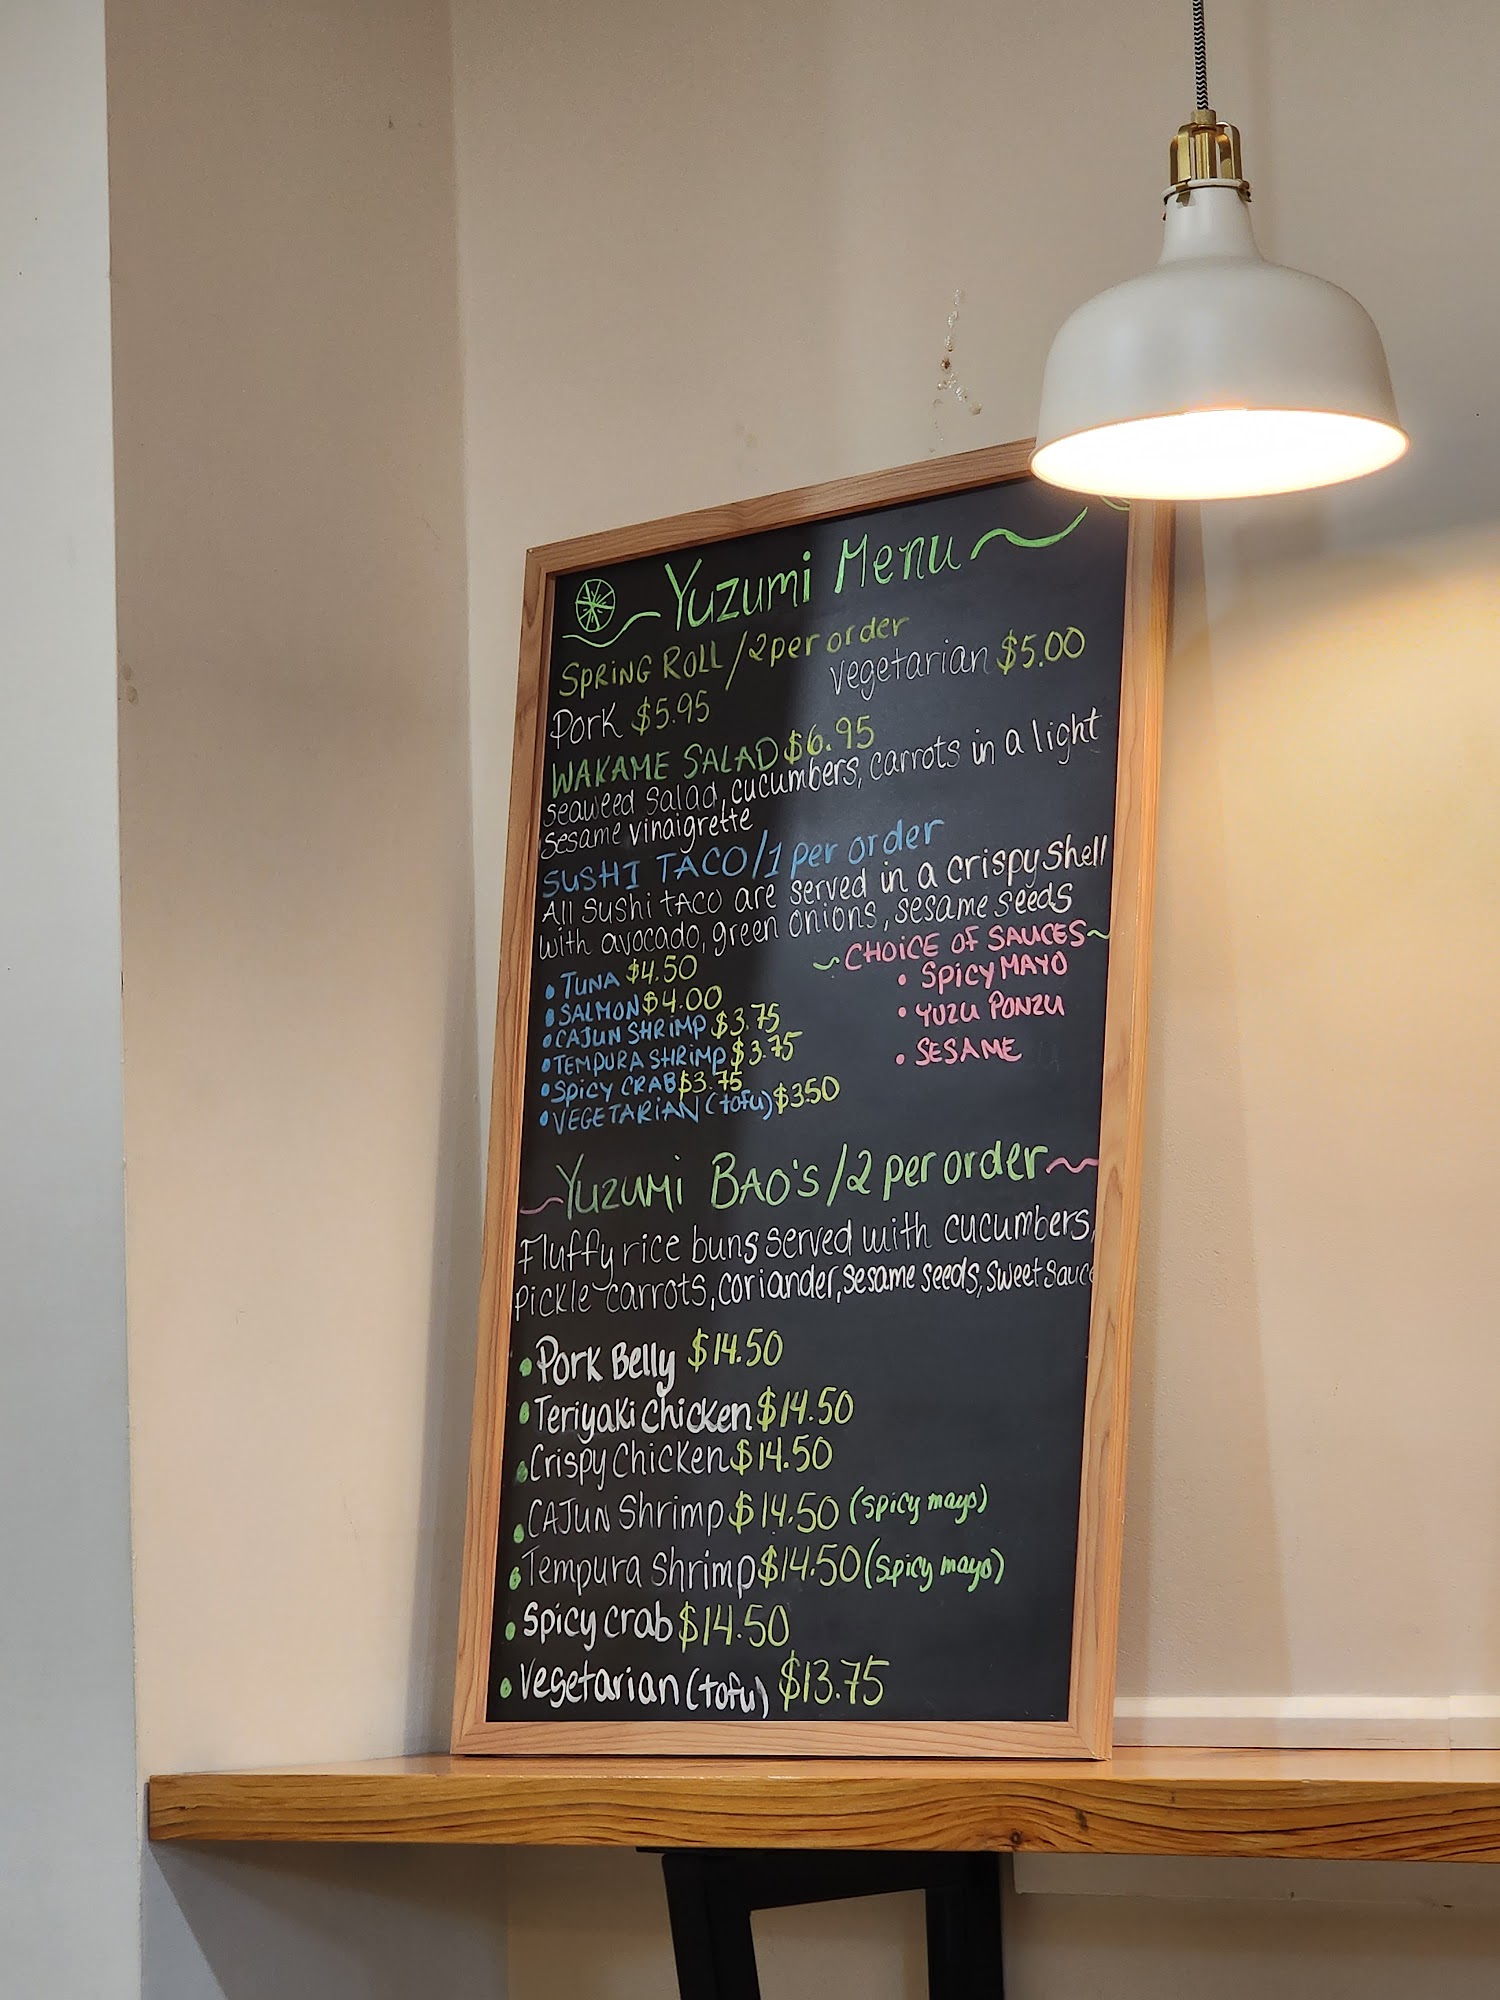 Yuzumi Menu
SPRING ROLL / 2 per order
Pork $5.95 vegetarian $5.00
WAKAME SALAD $6.95
seaweed salad, cucumbers, carrots in a light
sesame vinaigrette
SUSHI TACO / 1 per order
All sushi taco are served in a crispy shell
with avocado, green onions, sesame seeds
CHOICE OF SAUCES
• SPICY MAYO
• YUZU PONZU
• SESAME
• TUNA $4.50
• SALMON $4.00
• CAJUN SHRIMP $3.75
• TEMPURA SHRIMP $3.75
• SPICY CRAB $3.75
• VEGETARIAN (tofu) $3.50
Yuzumi BAO'S / 2 per order
Fluffy rice buns served with cucumbers,
Pickle carrots, coriander, sesame seeds, sweet sauce
• Pork Belly $14.50
• Teriyaki chicken $14.50
• Crispy Chicken $14.50
• CAJUN Shrimp $14.50 (spicy mayo)
• Tempura Shrimp $14.50 (spicy mayo)
• Spicy crab $14.50
• Vegetarian (tofu) $13.75